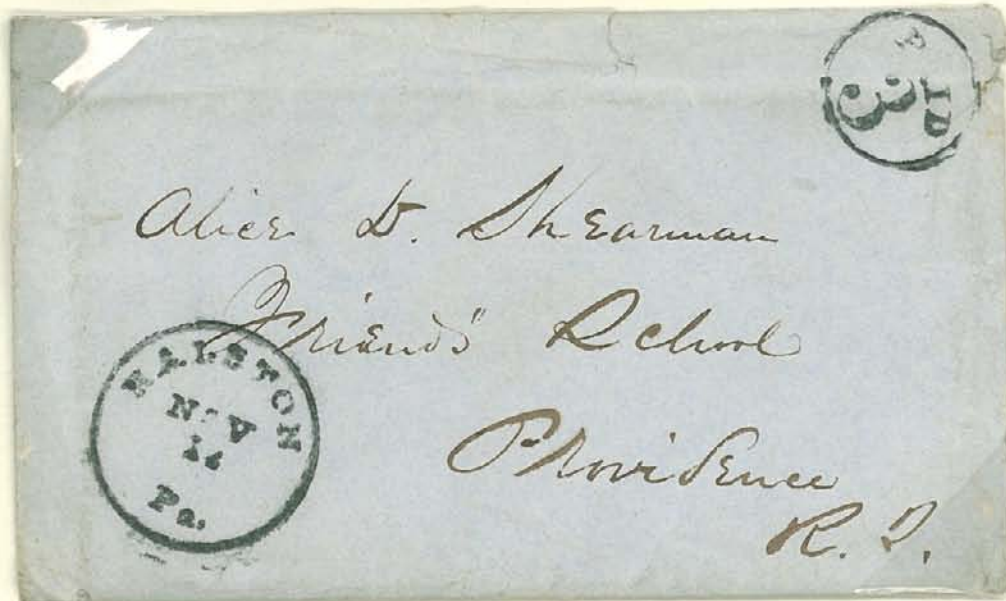 PAID
3
Alice D. Shearman
Friends' School
Providence
R. I.
RALSTON
NOV
14
Pa.